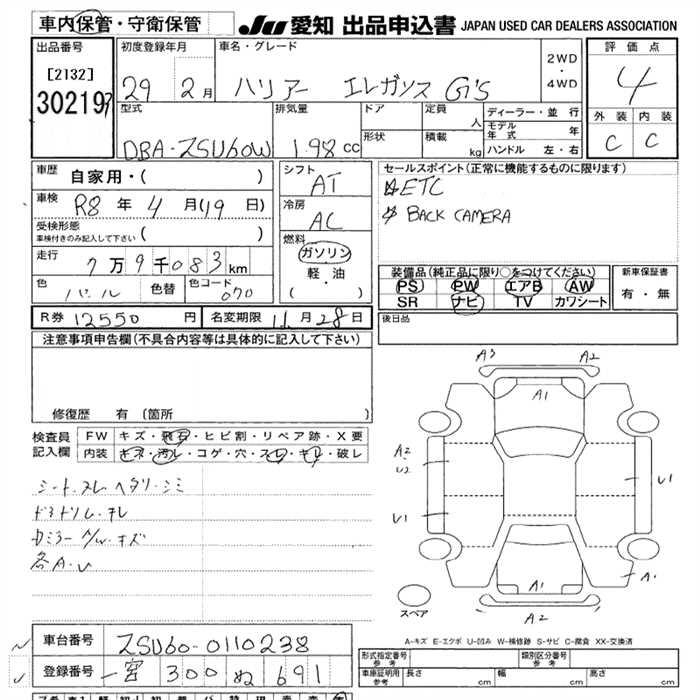 車内保管・守衛保管
JU 愛知 出品申込書 JAPAN USED CAR DEALERS ASSOCIATION
出品番号
[2132]
30219
初度登録年月
29 2月
車名・グレード
ハリアー エレガンス G's
2WD
・
4WD
評価点
4
外装 内装
C C
型式
DBA-ZSU60W
排気量
1.98 cc
ドア
形状
定員
人
積載
kg
ディーラー・並行
モデル年式 年
ハンドル 左・右
車歴
自家用・( )
車検
R8 年 4 月(19 日)
受検形態
車検付きのみ記入して下さい ( )
走行
7万9千083km
色
パール
色替
色コード
070
シフト
AT
冷房
AC
燃料
ガソリン
軽・油
( )
セールスポイント(正常に機能するものに限ります)
ETC
BACK CAMERA
装備品(純正品に限り○をつけてください)
PS PW エアB AW
SR ナビ TV カワシート
新車保証書
有・無
R券 12550 円
名変期限 11月28日
後日品
注意事項申告欄(不具合内容等は具体的に記入して下さい)
修復歴 有 (箇所
検査員
記入欄
FW キズ・飛石・ヒビ割・リペア跡・X要
内装 キズ・汚レ・コゲ・穴・スレ・キレ・破レ
シート.スレ ヘタリ.シミ
各A.U
A3 A2
A1
A2
U2
U1
U1
A1
A1
A2
スペア
A-キズ E-エクボ U-凹み W-補修跡 S-サビ C-腐食 XX-交換済
車台番号 ZSU60-0110238
登録番号 一宮 300 ぬ 691
型式指定番号
参考
類別区分番号
参考
車庫証明用
参考
長さ cm 幅 cm 高さ cm